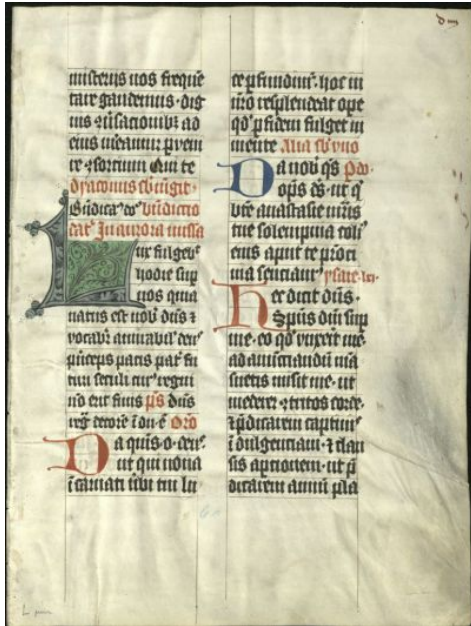 misteriis nos freque̅
tare gaudemus · dig
nis ꝯu̅sationib; ad
eius mereamur p̅veni
re ꝯsortium Qui te
dyaconus sb̅iungit
Bn̅dicaꝰ
Jn aurora missa
ux fulgebit
hodie sup̅
nos quia
natus est nob̅ dn̅s ⁊
vocabit̉ amirabil̉ deꝰ
p̅nceps pacis pat̉ fu
turi seculi cuiꝰ regni
no̅ erit finis p̅s dn̅s
reg̅ decore̅ i̅du̅ e̅ Or̅o
Da quis o · deꝰ
ut qui noua
i̅carnati v̅bi tui lu
ce p̅fundimur · hoc in
nr̅o resplendeat ope
qd̅ p̅ fidem fulget in
mente Alia sb̅ vno
Da nob̅ qs̅
op̅s ds̅ · ut q̉
bte̅ anastasie m̅ris
tue solempnia coli
mus aput te proci
nia senciamꝰ ysaie ·
Hec dicit dn̅s ·
Spu̅s dn̅i sup̅
me · eo qd̅ vnxerit me ·
ad anu̅cciandu̅ ma̅
suetis misit me · ut
mederer ꝯtritos corde ·
⁊ p̅dicarem captiuis
i̅dulgenciam · ⁊ clau
sis apercionem · ut p̅
dicarem annu̅ pla